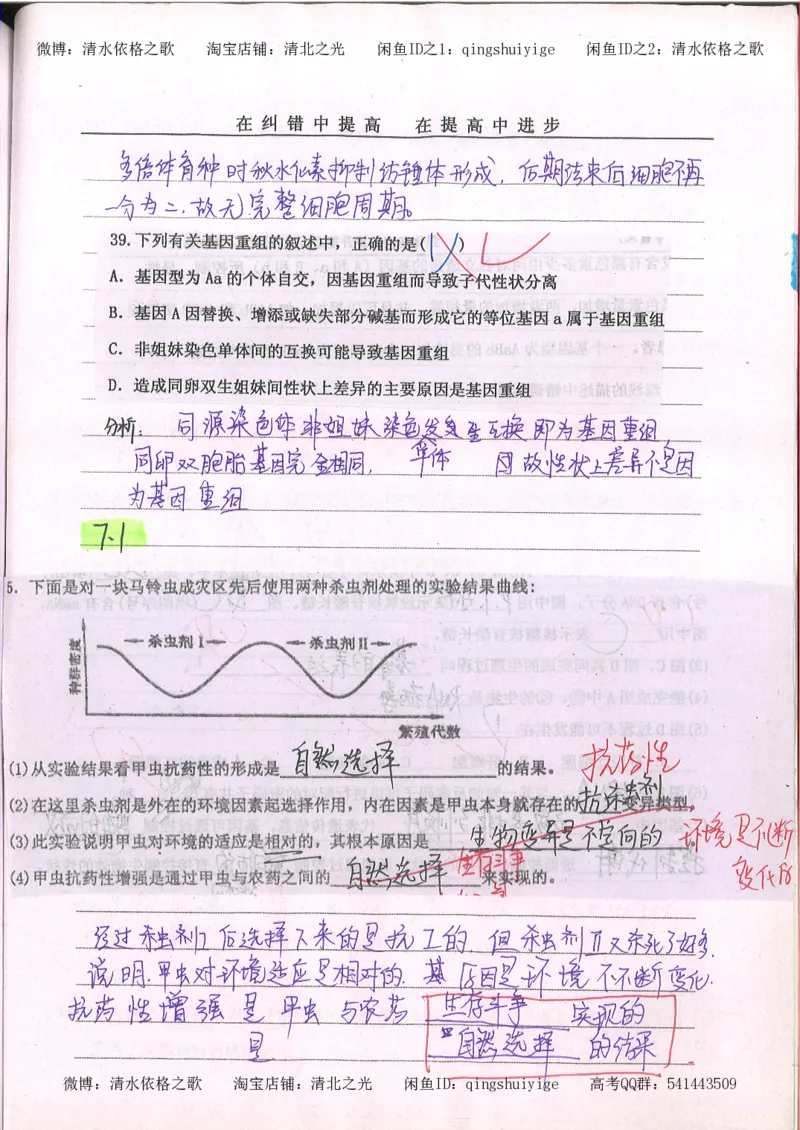 微博：清水依格之歌 淘宝店铺：清北之光 闲鱼ID之1：qingshuiyige 闲鱼ID之2：清水依格之歌
在纠错中提高 在提高中进步
多倍体育种时秋水仙素抑制纺锤体形成，后期结束后细胞不再
一分为二，故无完整细胞周期。
39.下列有关基因重组的叙述中，正确的是( )
A．基因型为 Aa 的个体自交，因基因重组而导致子代性状分离
B．基因 A 因替换、增添或缺失部分碱基而形成它的等位基因 a 属于基因重组
C．非姐妹染色单体间的互换可能导致基因重组
D．造成同卵双生姐妹间性状上差异的主要原因是基因重组
分析：同源染色体非姐妹染色发生互换即为基因重组
单体
同卵双胞胎基因完全相同， 故性状上差异不是因
为基因重组
7.1
5．下面是对一块马铃虫成灾区先后使用两种杀虫剂处理的实验结果曲线：
杀虫剂 I 杀虫剂 II
种群密度
繁殖代数
(1)从实验结果看甲虫抗药性的形成是 自然选择 的结果。 抗药性
(2)在这里杀虫剂是外在的环境因素起选择作用，内在因素是甲虫本身就存在的 抗杀虫剂 变异类型。
(3)此实验说明甲虫对环境的适应是相对的，其根本原因是 生物变异是不定向的 环境是不断
变化的
(4)甲虫抗药性增强是通过甲虫与农药之间的 自然选择 生存斗争 来实现的。
经过杀虫剂I后选择下来的是抗I的，但杀虫剂II又杀死了好多，
说明甲虫对环境适应是相对的，其原因是环境不断变化．
抗药性增强是甲虫与农药 生存斗争 实现的
是 自然选择 的结果
微博：清水依格之歌 淘宝店铺：清北之光 闲鱼ID：qingshuiyige 高考QQ群：541443509